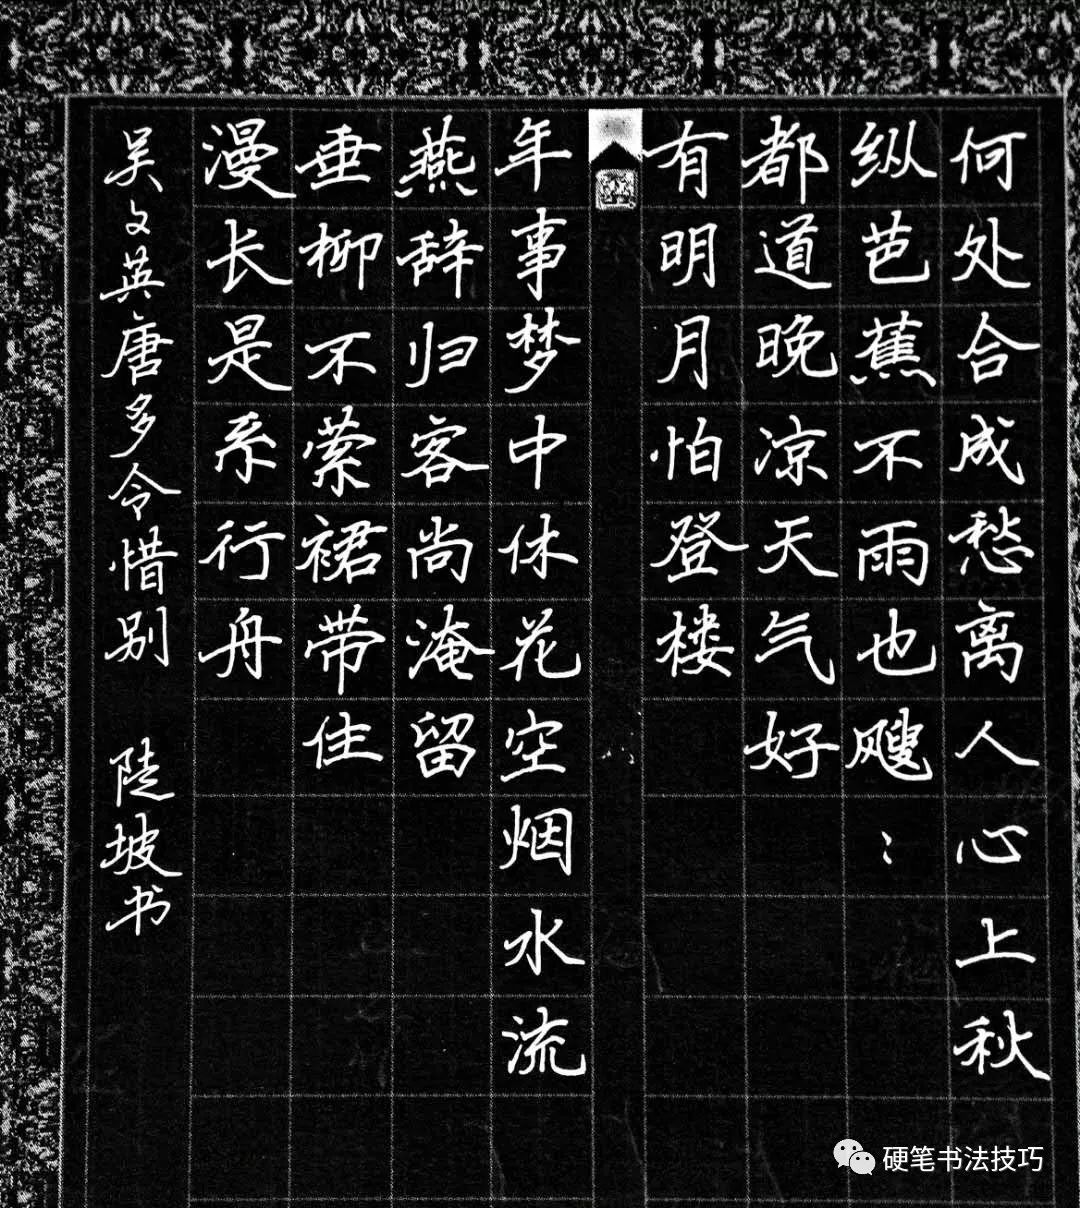 何处合成愁离人心上秋
纵芭蕉不雨也飕:
都道晚凉天气好
有明月怕登楼
年事梦中休花空烟水流
燕辞归客尚淹留
垂柳不萦裙带住
漫长是系行舟
吴文英唐多令惜别 陡坡书
硬笔书法技巧